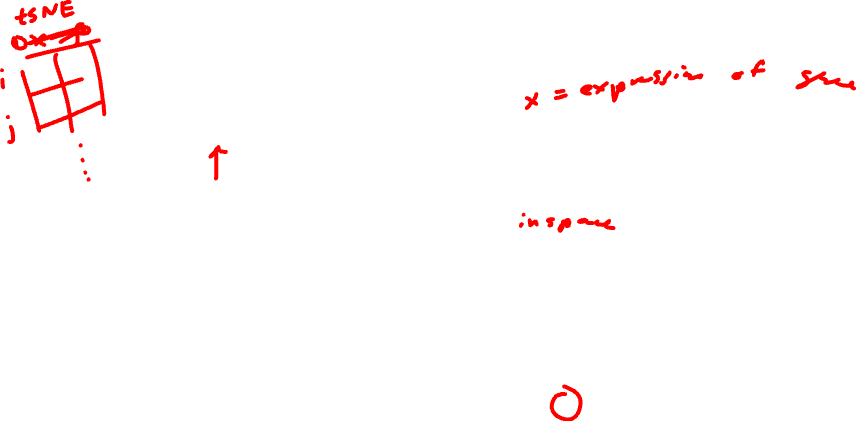 tSNE
i
x = expression of gene
j
in space